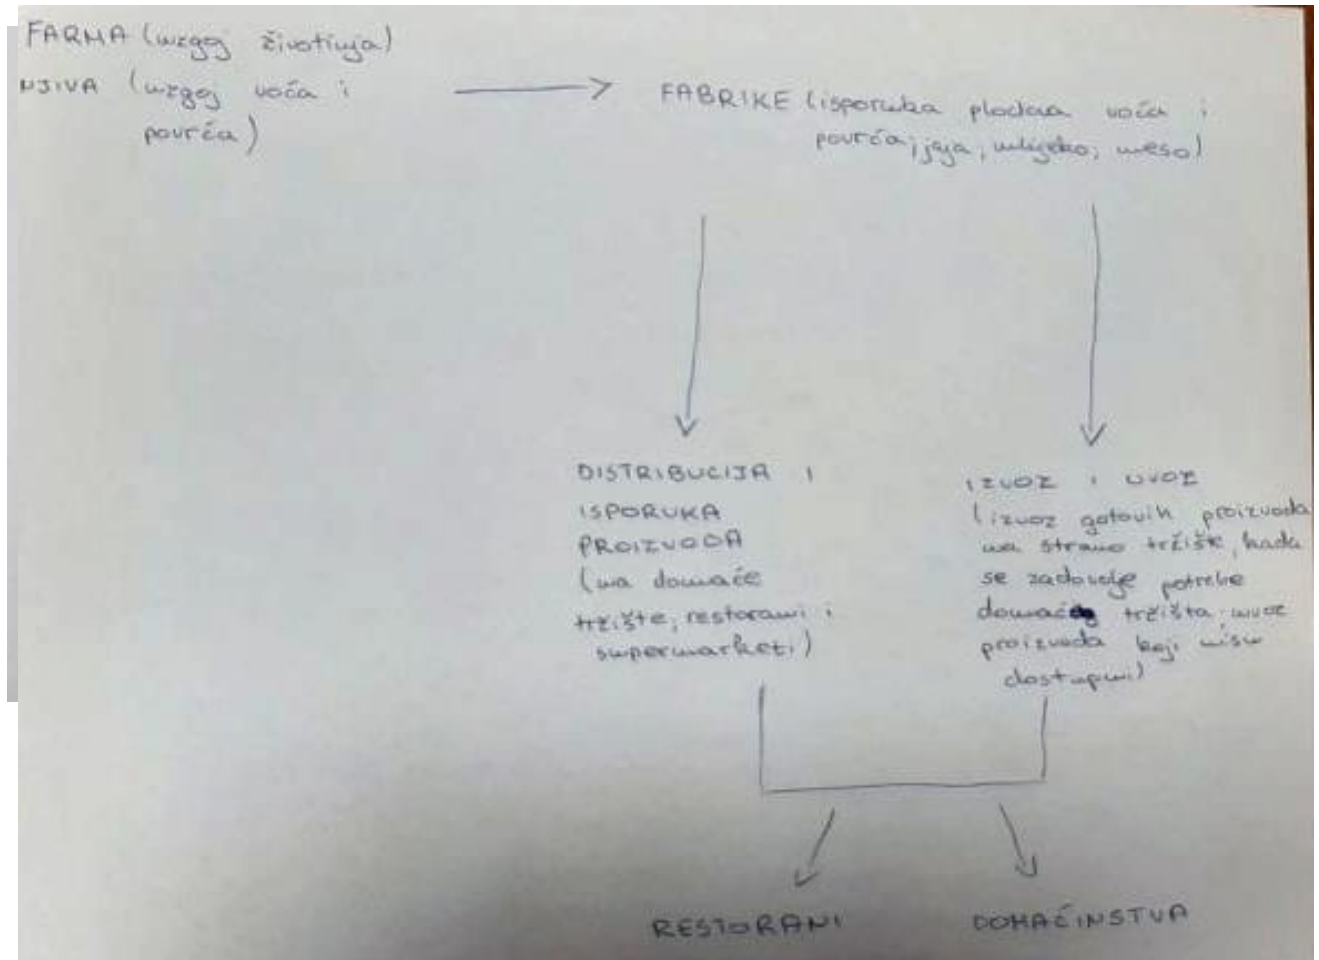 FARMA (uzgoj životinja)
NJIVA (uzgoj voća i
povrća)
FABRIKE (isporuka plodova voća i
povrća; jaja, mlijeko, meso)
DISTRIBUCIJA I
ISPORUKA
PROIZVODA
(na domaće
tržište, restorani i
supermarketi)
IZVOZ I UVOZ
(izvoz gotovih proizvoda
na strano tržište, kada
se zadovolje potrebe
domaćeg tržišta; uvoz
proizvoda koji nisu
dostupni)
RESTORANI
DOMAĆINSTVA